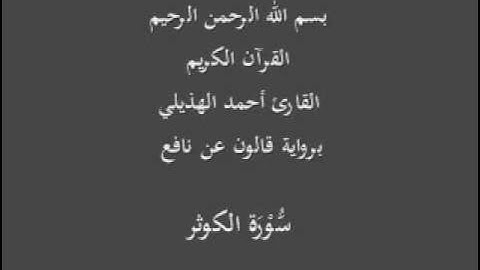 بسم الله الرحمن الرحيم
القرآن الكريم
القارئ أحمد الهذيلي
برواية قالون عن نافع
سُّوْرَة الكوثر